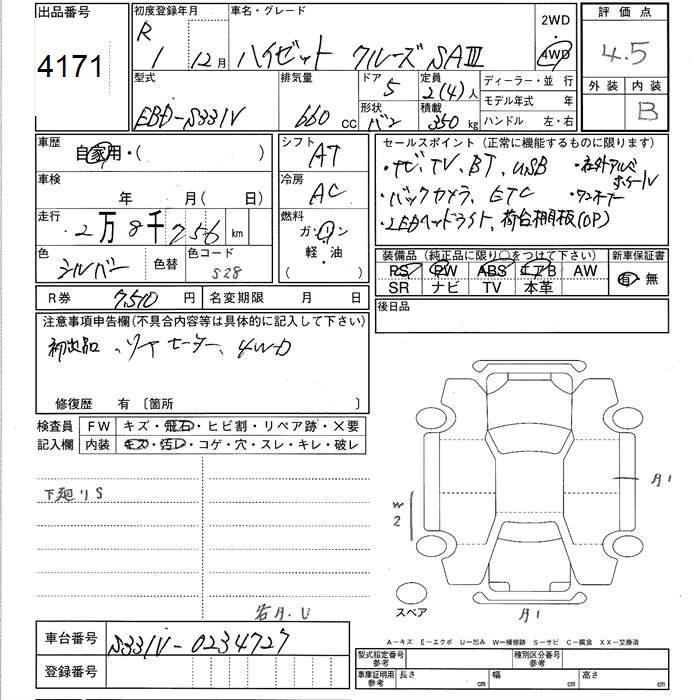 出品番号
4171
初度登録年月
R 1 12月
車名・グレード
ハイゼット クルーズSAⅢ
2WD
4WD
評価点
4.5
型式
EBD-S331V
排気量
660 cc
ドア
5
形状
バン
定員
2(4)人
積載
350 kg
ディーラー・並行
モデル年式 年
ハンドル 左・右
外装 内装
B
車歴
自家用・( )
シフト
AT
セールスポイント(正常に機能するものに限ります)
・ナビ、TV、BT、USB
・社外アルミホイール
・バックカメラ、ETC
・ワンオーナー
・LEDヘッドライト、荷台棚板(OP)
車検
年 月( 日)
冷房
AC
走行
2万8千256 km
燃料
ガソリン
軽・油
( )
色
シルバー
色替
色コード
S28
装備品(純正品に限り○をつけて下さい)
PS PW ABS エアB AW
SR ナビ TV 本革
新車保証書
有・無
R券 7,510 円
名変期限 月 日
後日品
注意事項申告欄(不具合内容等は具体的に記入して下さい)
初出品、ソナーセンサー、4WD
修復歴 有〔箇所 〕
検査員
記入欄
FW キズ・飛石・ヒビ割・リペア跡・X要
内装 キズ・汚レ・コゲ・穴・スレ・キレ・破レ
下廻りS
若月.U
W
2
月1
月1
スペア
A-キズ E-エクボ U-凹み W-補修跡 S-サビ C-腐食 XX-交換済
車台番号
S331V-0234727
登録番号
型式指定番号
参考
種別区分番号
参考
車庫証明用
参考
長さ cm
幅 cm
高さ cm